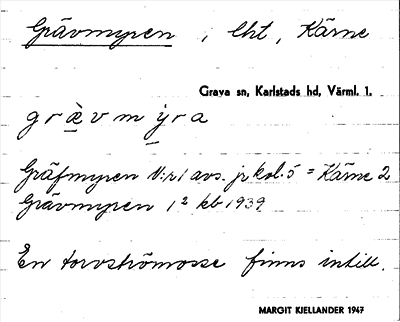 Grävmyren, lht, Kärne
Grava sn, Karlstads hd, Värml. 1.
grævmyra
Gräfmyren V:r1 avs. jr kol. 5 = Kärne 2
Grävmyren 1² kb 1939
En torvströmosse finns intill.
MARGIT KJELLANDER 1947